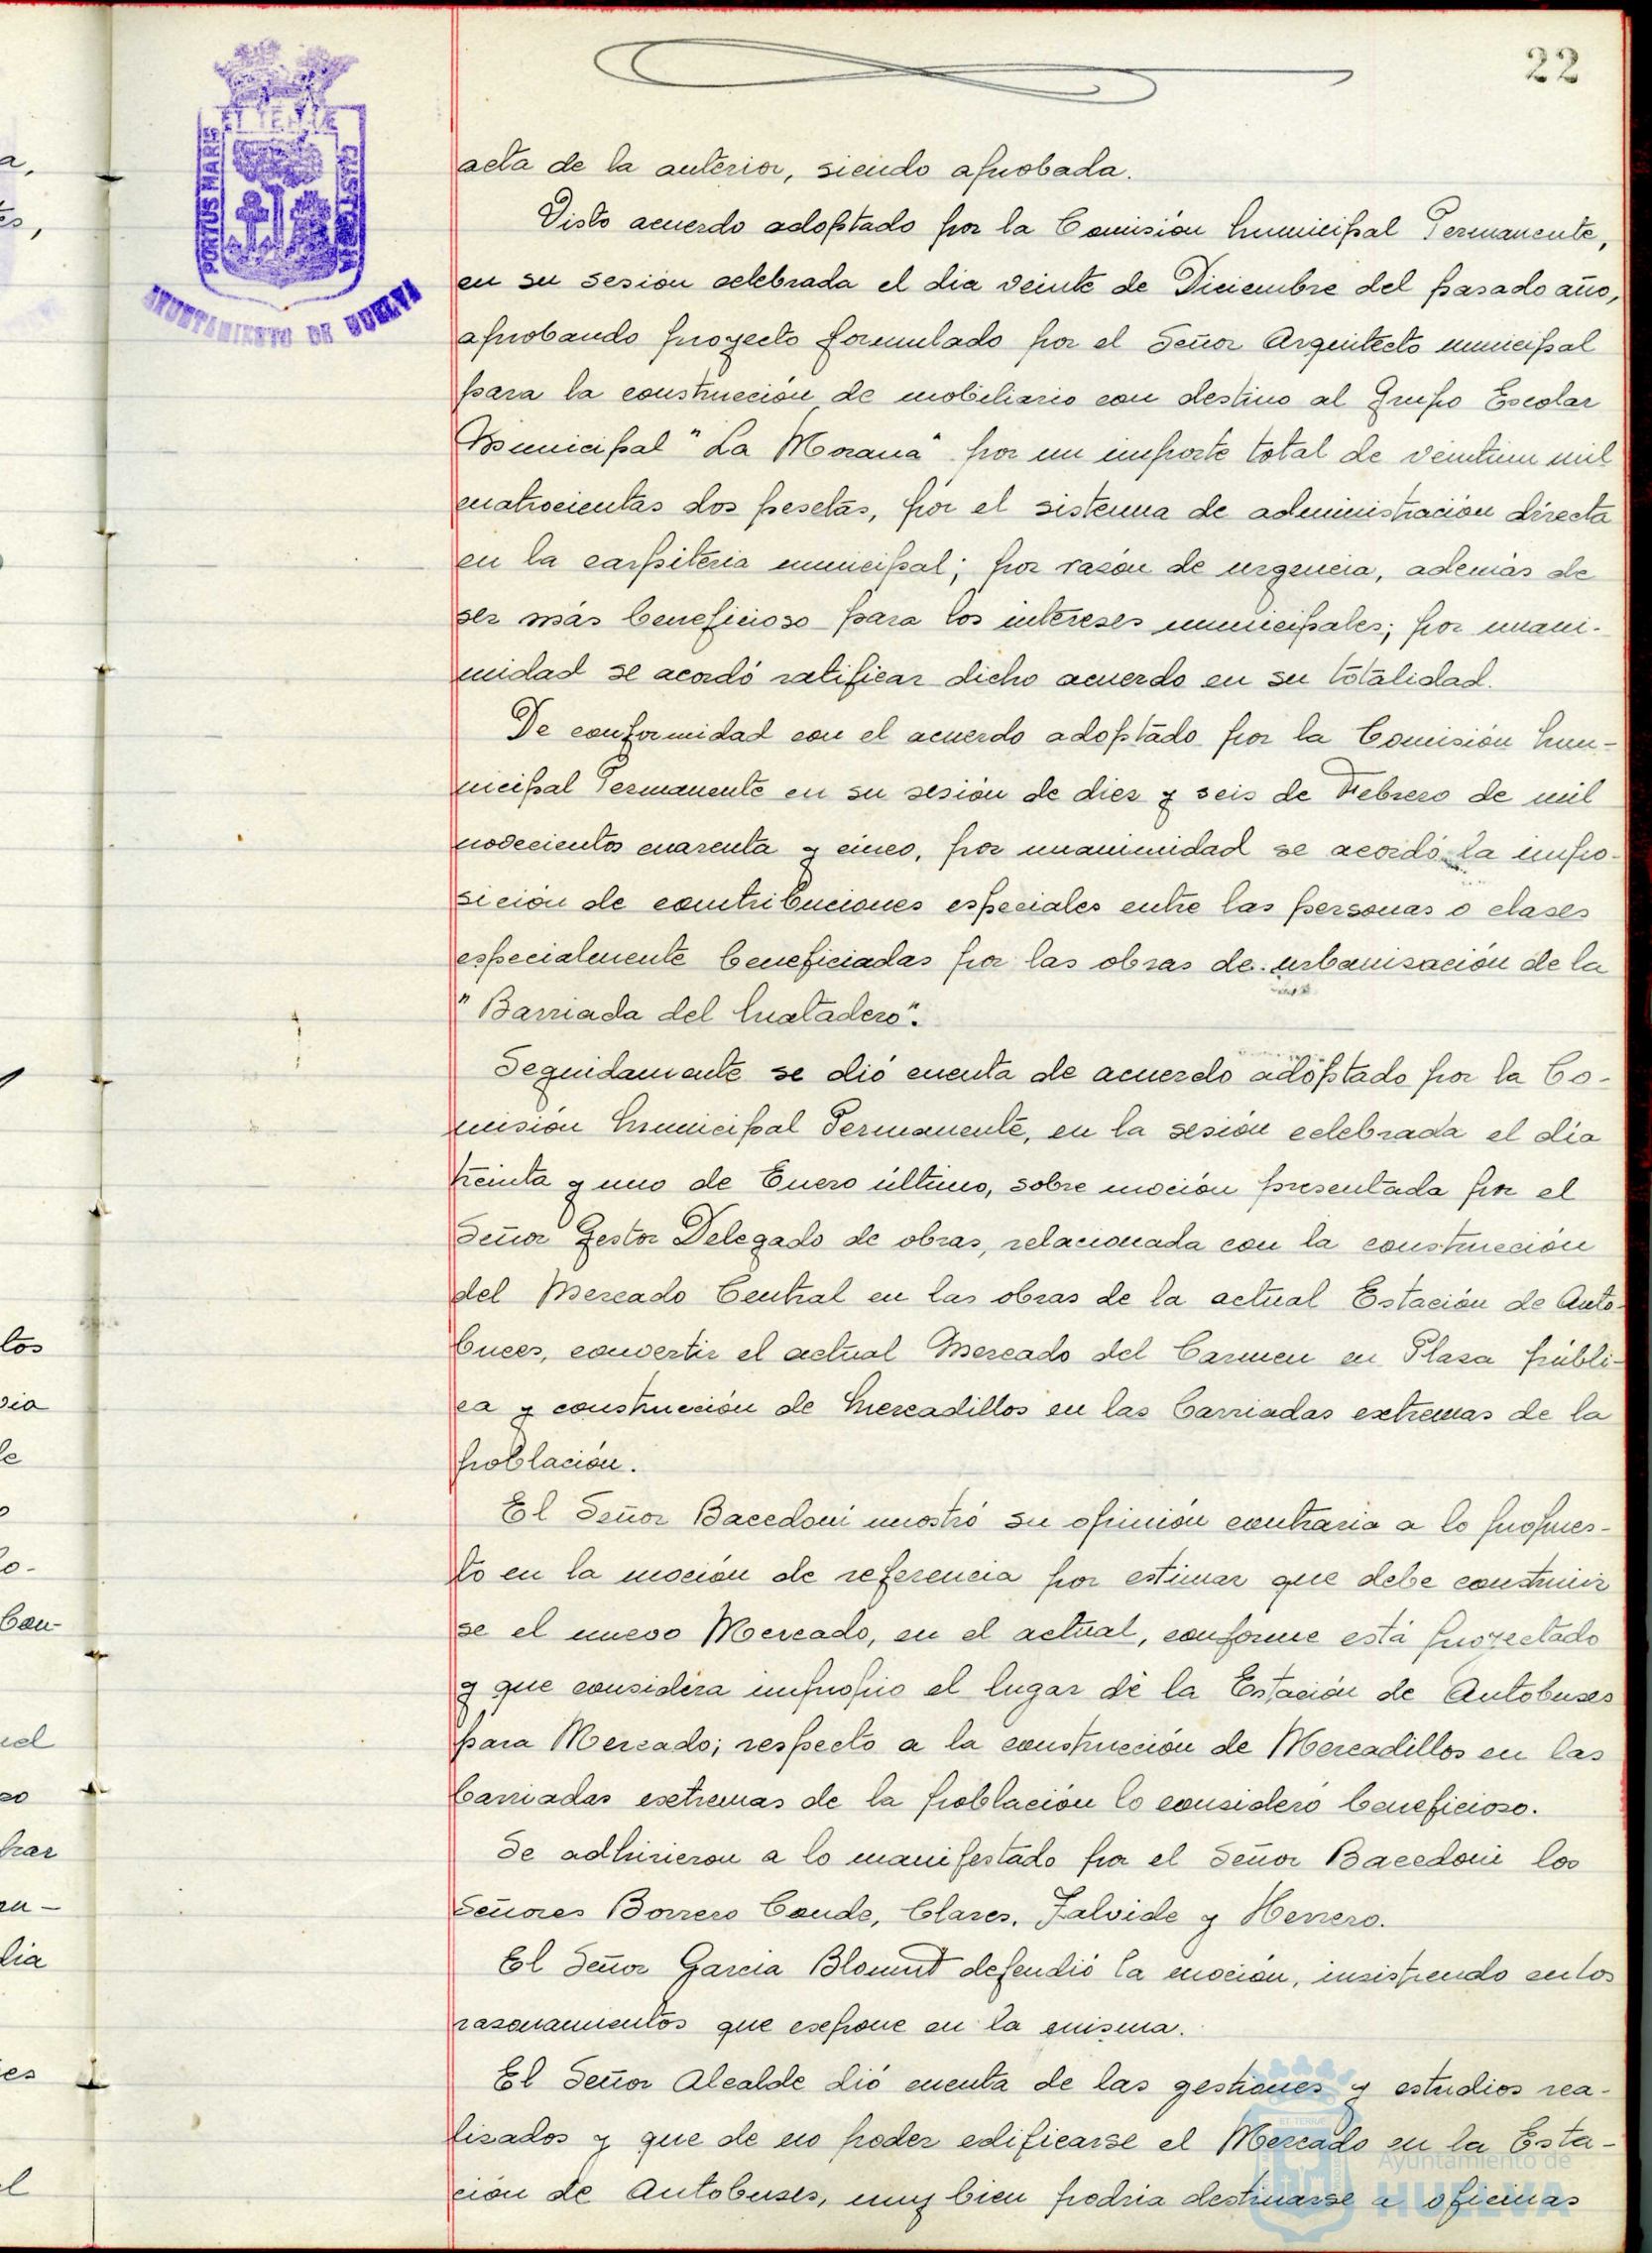 22
PORTUS MARIS
ET TERRÆ
CUSTODIA
AYUNTAMIENTO DE HUELVA
acta de la anterior, siendo aprobada.
Visto acuerdo adoptado por la Comisión Municipal Permanente,
en su sesión celebrada el dia veinte de Diciembre del pasado año,
aprobando proyecto formulado por el Señor Arquitecto municipal
para la construcción de mobiliario con destino al Grupo Escolar
Municipal "La Morana" por un importe total de veintiun mil
cuatrocientas dos pesetas, por el sistema de administración directa
en la carpiteria municipal; por razón de urgencia, además de
ser más beneficioso para los intereses municipales; por unani-
midad se acordó ratificar dicho acuerdo en su totalidad.
De conformidad con el acuerdo adoptado por la Comisión Mun-
nicipal Permanente en su sesión de diez y seis de Febrero de mil
novecientos cuarenta y cinco, por unanimidad se acordó la impo-
sición de contribuciones especiales entre las personas o clases
especialmente beneficiadas por las obras de urbanización de la
"Barriada del Matadero".
Seguidamente se dió cuenta de acuerdo adoptado por la Co-
misión Municipal Permanente, en la sesión celebrada el día
treinta y uno de Enero último, sobre moción presentada por el
Señor Gestor Delegado de obras, relacionada con la construcción
del Mercado Central en las obras de la actual Estación de Auto-
buces, convertir el actual Mercado del Carmen en Plaza públi-
ca y construcción de Mercadillos en las barriadas extremas de la
población.
El Señor Bacedoni mostró su opinión contraria a lo propues-
to en la moción de referencia por estimar que debe construir
se el nuevo Mercado, en el actual, conforme está proyectado
y que considera impropio el lugar de la Estación de Autobuses
para Mercado; respecto a la construcción de Mercadillos en las
barriadas extremas de la población lo consideró beneficioso.
Se adhirieron a lo manifestado por el Señor Bacedoni los
Señores Borrero Conde, Clares, Jalvide y Herrero.
El Señor Garcia Blount defendió la moción, insistiendo en los
razonamientos que expone en la misma.
El Señor Alcalde dió cuenta de las gestiones y estudios rea-
lizados y que de no poder edificarse el Mercado en la Esta-
ción de Autobuses, muy bien podria destinarse a oficinas
Ayuntamiento de
HUELVA